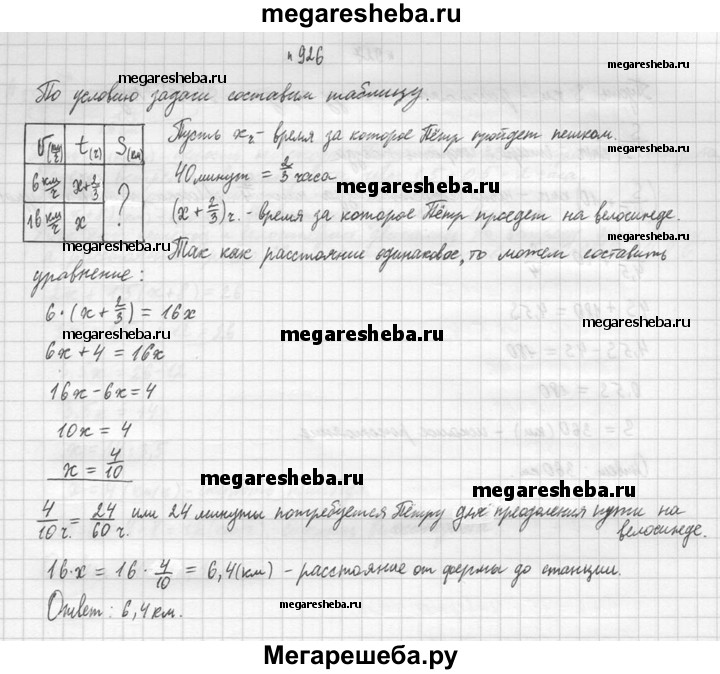 megaresheba.ru
n 926
megaresheba.ru
По условию задачи составим таблицу.
megaresheba.ru
V(км/ч) t(ч) S(км)
Пусть x ч - время за которое Пётр пройдет пешком.
40 минут = 2/3 часа
6 км/ч x+2/3 ?
megaresheba.ru
megaresheba.ru
16 км/ч x
(x + 2/3) ч. - время за которое Пётр проедет на велосипеде.
Так как расстояние одинаковое, то можем составить
megaresheba.ru
уравнение:
6·(x + 2/3) = 16x
megaresheba.ru
megaresheba.ru
megaresheba.ru
6x + 4 = 16x
16x - 6x = 4
megaresheba.ru
10x = 4
x = 4/10
megaresheba.ru
megaresheba.ru
4/10 ч. = 24/60 ч. или 24 минуты потребуется Петру для преодоления пути на
велосипеде.
megaresheba.ru
16·x = 16 · 4/10 = 6,4 (км) - расстояние от фермы до станции.
Ответ: 6,4 км.
megaresheba.ru
Мегарешеба.ру